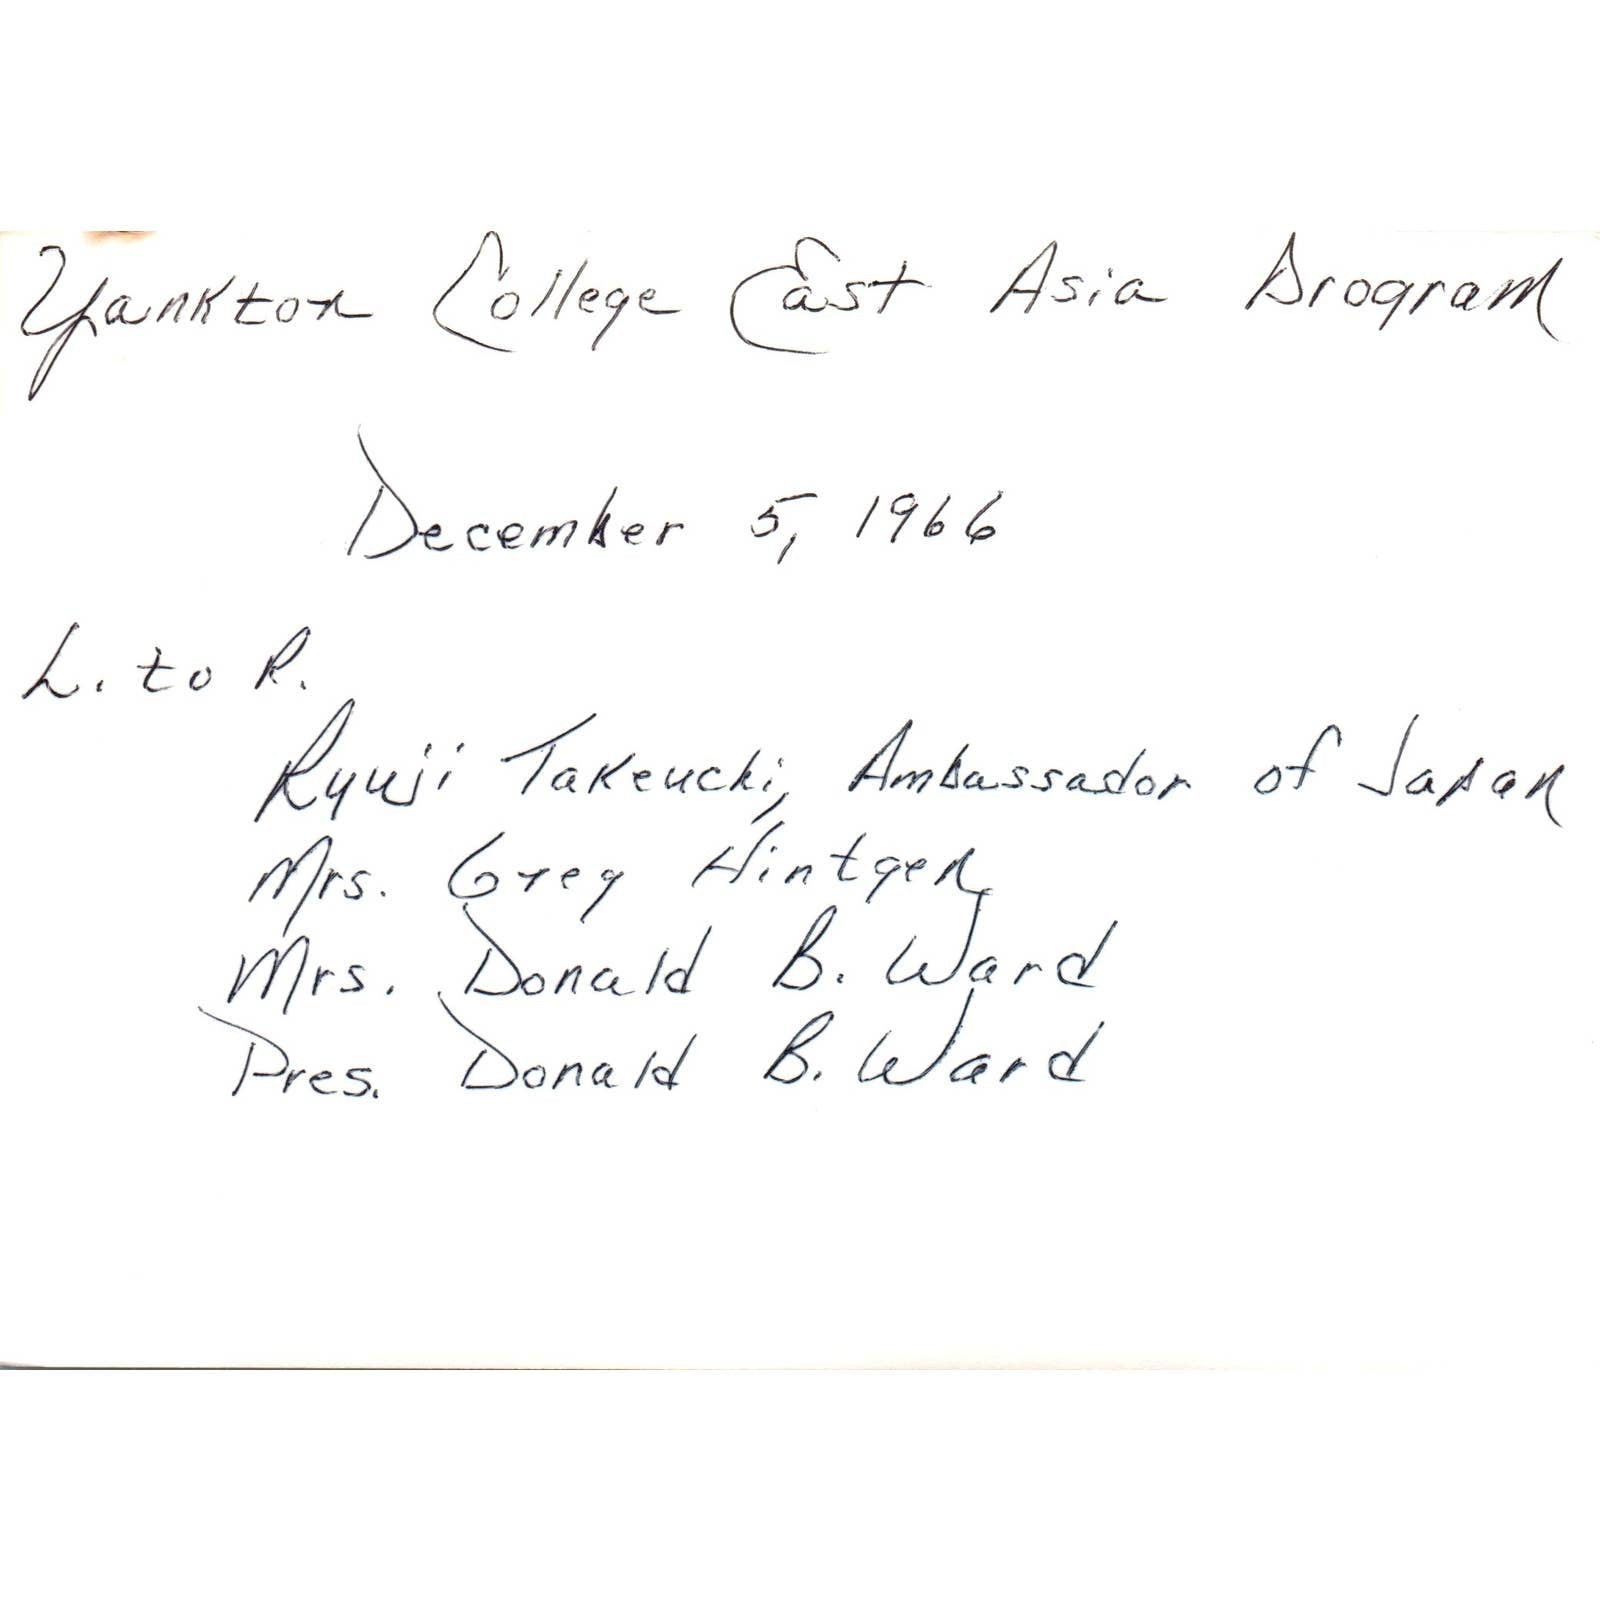 Yankton College East Asia Program
December 5, 1966
L. to R.
Ryuji Takeuchi, Ambassador of Japan
Mrs. Greg Hintgen
Mrs. Donald B. Ward
Pres. Donald B. Ward